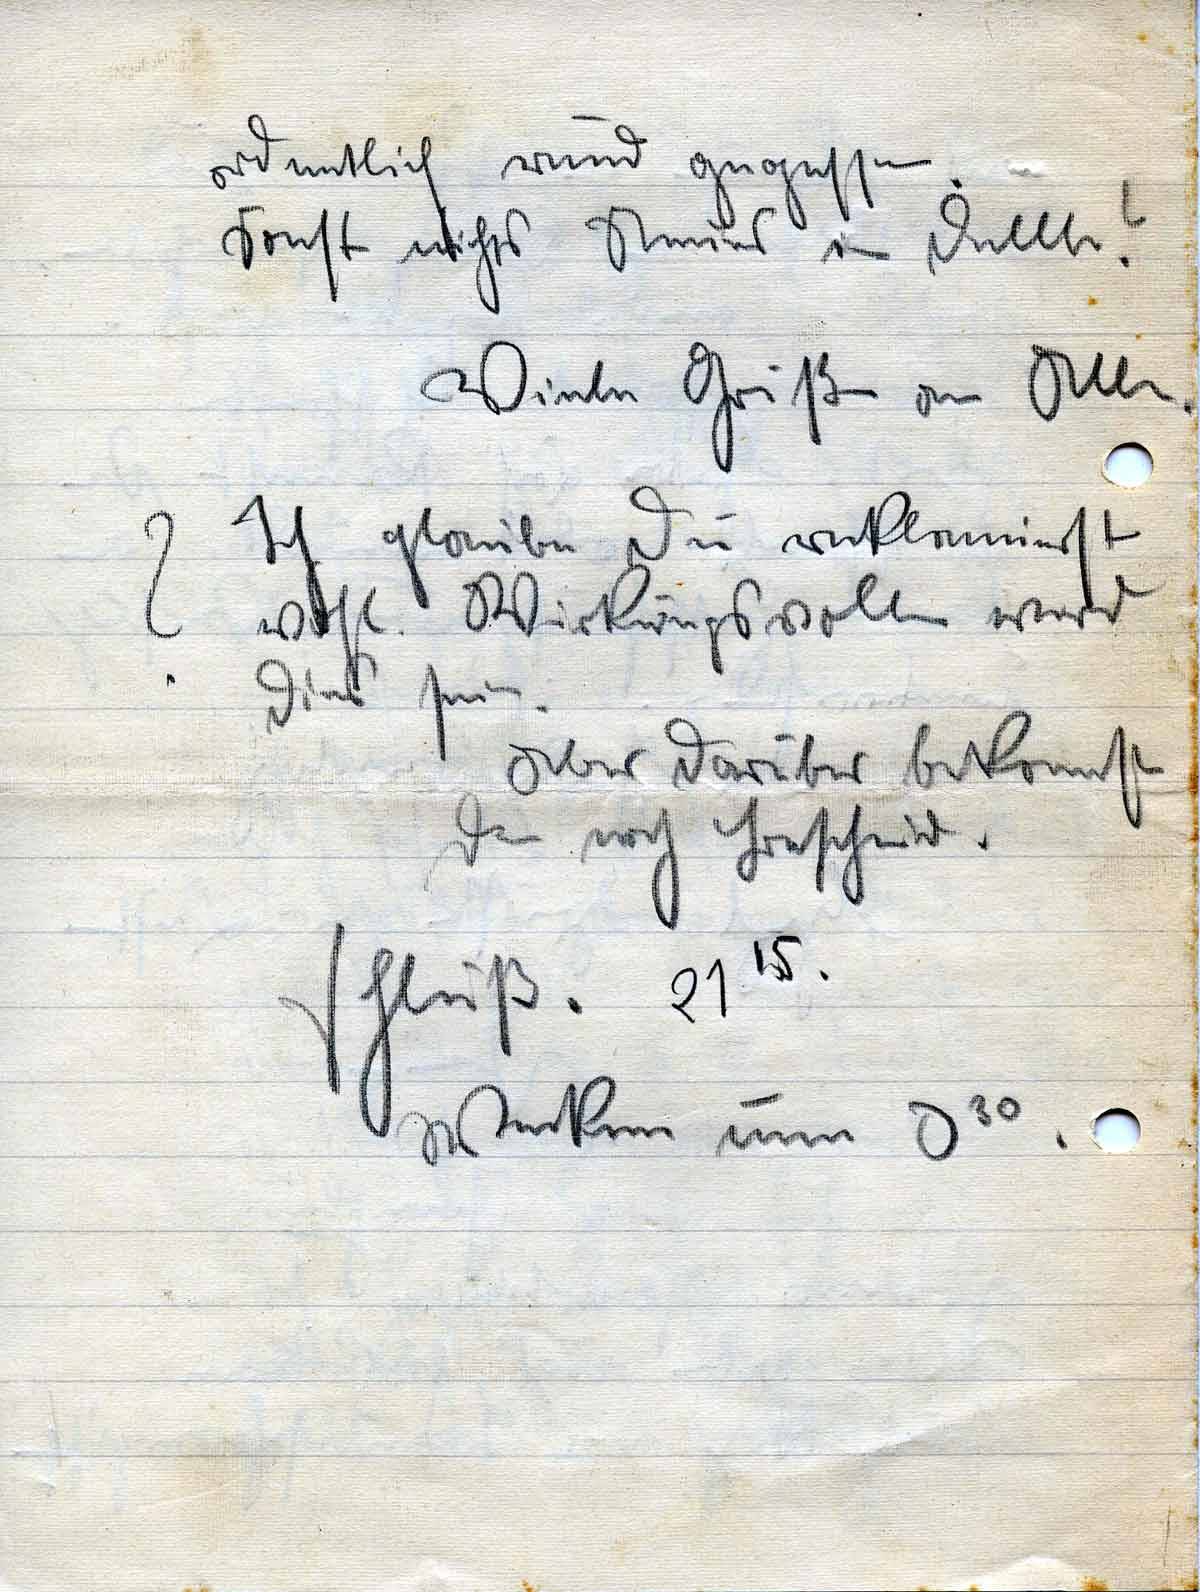 ordentlich rund gegessen.
Sonst nichts Neues in Dulken!
Viele Grüße an Alle.
? Ich glaube Du reklamierst
wohl. Wirkungsvoller wird
dies sein.
Aber darüber bekommst
Du noch Bescheid.
Schluß. 21 15.
Wecken um 0 30.